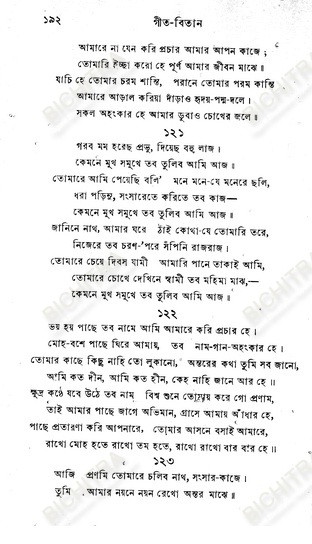 ১৯২ গীত-বিতান
আমারে না যেন করি প্রচার আমার আপন কাজে;
তোমারি ইচ্ছা করো হে পূর্ণ আমার জীবন মাঝে॥
যাচি হে তোমার চরম শান্তি, পরানে তোমার পরম কান্তি
আমারে আড়াল করিয়া দাঁড়াও হৃদয়-পদ্ম-দলে।
সকল অহংকার হে আমার ডুবাও চোখের জলে॥
১২১
গরব মম হরেছ প্রভু, দিয়েছ বহু লাজ।
কেমনে মুখ সমুখে তব তুলিব আমি আজ॥
তোমারে আমি পেয়েছি বলি’ মনে মনে-যে মনেরে ছলি,
ধরা পড়িনু, সংসারেতে করিতে তব কাজ—
কেমনে মুখ সমুখে তব তুলিব আমি আজ॥
জানিনে নাথ, আমার ঘরে ঠাঁই কোথা-যে তোমারি তরে,
নিজেরে তব চরণ-’পরে সঁপিনি রাজরাজ।
তোমারে চেয়ে দিবস যামী আমারি পানে তাকাই আমি,
তোমারে চোখে দেখিনে স্বামী তব মহিমা মাঝ,—
কেমনে মুখ সমুখে তব তুলিব আমি আজ॥
১২২
ভয় হয় পাছে তব নামে আমি আমারে করি প্রচার হে।
মোহ-বশে পাছে ঘিরে আমায়, তব নাম-গান-অহংকার হে।
তোমার কাছে কিছু নাহি তো লুকানো, অন্তরের কথা তুমি সব জানো,
আমি কত দীন, আমি কত হীন, কেহ নাহি জানে আর হে॥
ক্ষুদ্র কণ্ঠে যবে উঠে তব নাম বিশ্ব শুনে তোমায় করে গো প্রণাম,
তাই আমার পাছে জাগে অভিমান, গ্রাসে আমায় আঁধার হে,
পাছে প্রতারণা করি আপনারে, তোমার আসনে বসাই আমারে,
রাখো মোহ হতে রাখো তম হতে, রাখো রাখো বার বার হে॥
১২৩
আজি প্রণমি তোমারে চলিব নাথ, সংসার-কাজে।
তুমি আমার নয়নে নয়ন রেখো অন্তর মাঝে॥
BICHITRA